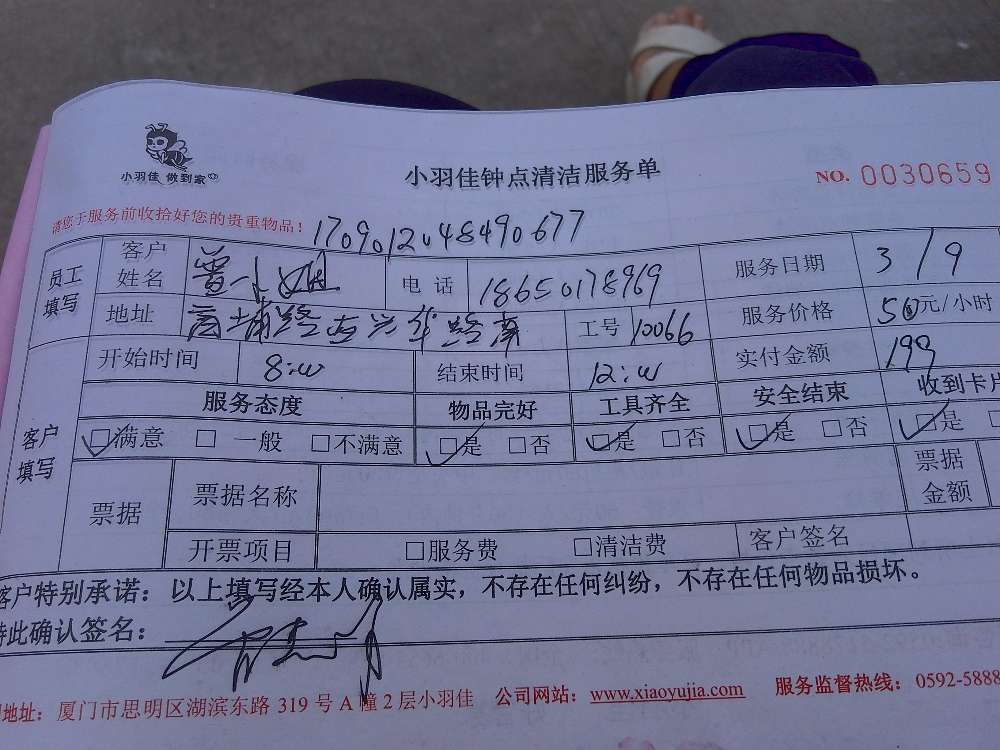 小羽佳 做到家
小羽佳钟点清洁服务单
NO. 0030659
请您于服务前收拾好您的贵重物品！
1709012048490677
员工填写 客户姓名 曾小姐 电话 18650178969 服务日期 3/9
地址 工号 10066 服务价格 50元/小时
客户填写 开始时间 8:00 结束时间 12:00 实付金额 199
服务态度 物品完好 工具齐全 安全结束 收到卡片
☑满意 □一般 □不满意 ☑是 □否 ☑是 □否 ☑是 □否 ☑是
票据 票据名称 票据金额
开票项目 □服务费 □清洁费 客户签名
客户特别承诺：以上填写经本人确认属实，不存在任何纠纷，不存在任何物品损坏。
特此确认签名：
地址：厦门市思明区湖滨东路 319 号 A 幢 2 层小羽佳 公司网站：www.xiaoyujia.com 服务监督热线：0592-5888